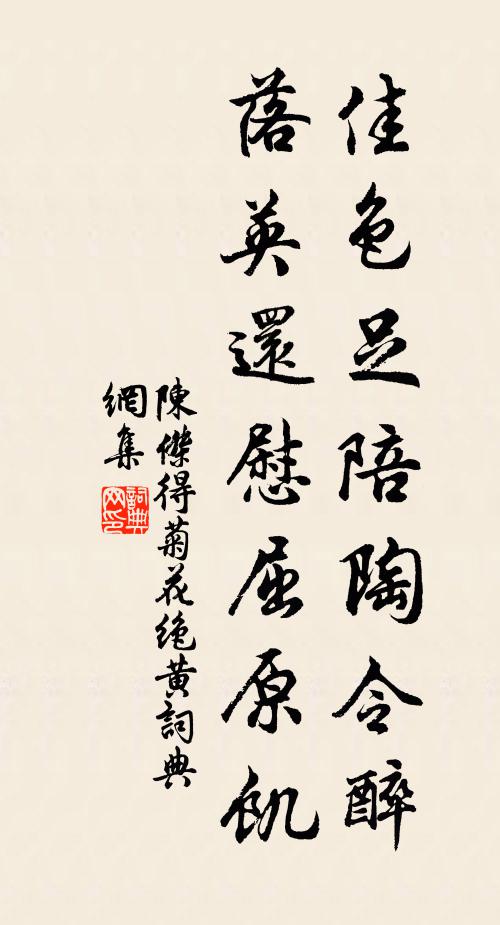 佳色足陪陶令醉
落英還慰屈原飢
陳傑得菊花絶黄詞典
網集
詞典
网印